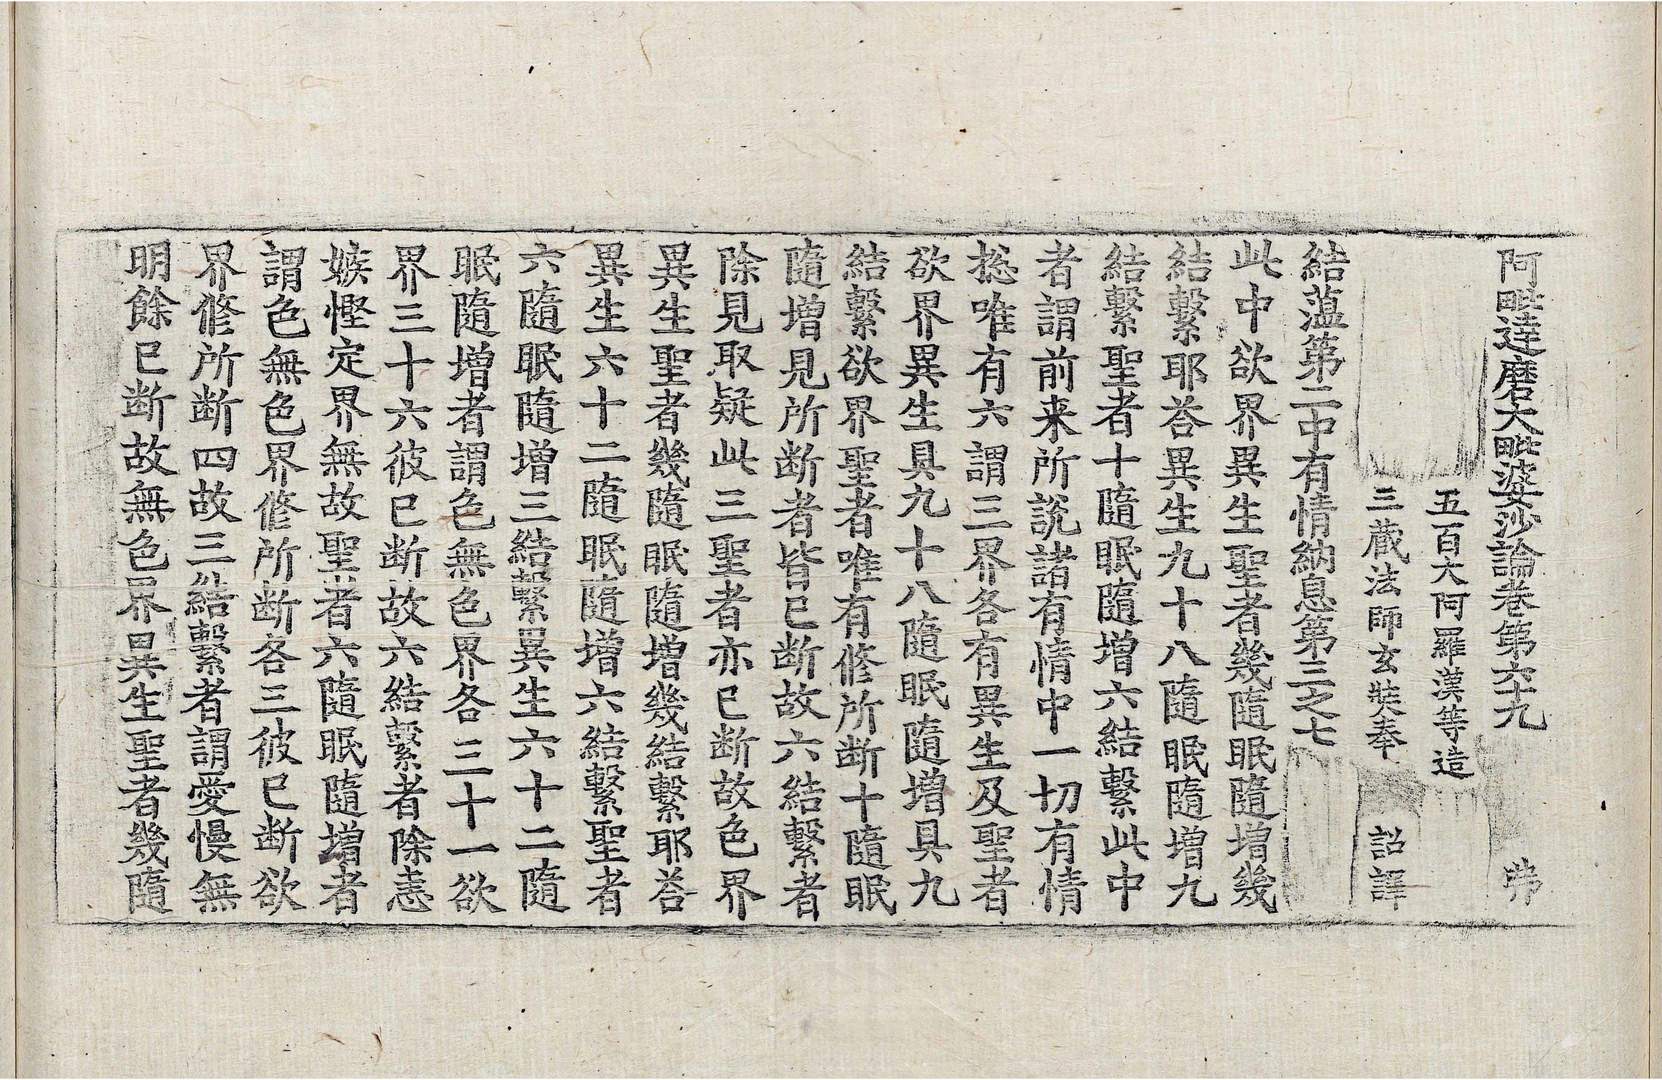 阿毗達磨大毗婆沙論卷第六十九　㡧
五百大阿羅漢等造
三藏法師玄奘奉　詔譯
結蘊第二中有情納息第三之七
此中欲界異生聖者幾隨眠隨增幾
結繫耶荅異生九十八隨眠隨增九
結繫聖者十隨眠隨增六結繫此中
者謂前来所說諸有情中一切有情
揔唯有六謂三界各有異生及聖者
欲界異生具九十八隨眠隨增具九
結繫欲界聖者唯有修所断十隨眠
隨增見所断者皆已断故六結繫者
除見取疑此三聖者亦已断故色界
異生聖者幾隨眠隨增幾結繫耶荅
異生六十二隨眠隨增六結繫聖者
六隨眠隨增三結繫異生六十二隨
眠隨增者謂色無色界各三十一欲
界三十六彼已断故六結繫者除恚
嫉慳定界無故聖者六隨眠隨增者
謂色無色界修所断各三彼已断欲
界修所断四故三結繫者謂愛慢無
明餘已断故無色界異生聖者幾隨